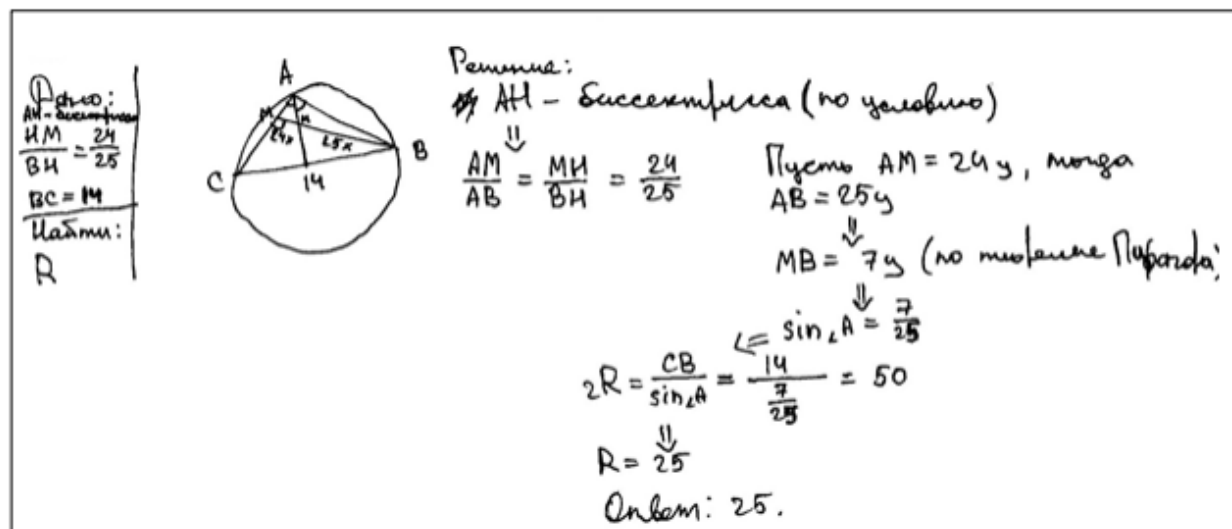 Дано:
AH - биссектриса
HM/BH = 24/25
BC = 14
Найти:
R
A
M
H
24x
25x
C
B
14
Решение:
AH - биссектриса (по условию)
⇓
AM/AB = MH/BH = 24/25
Пусть AM = 24y, тогда
AB = 25y
⇓
MB = 7y (по теореме Пифагора)
⇓
⇐ sin∠A = 7/25
2R = CB/sin∠A = 14/(7/25) = 50
⇓
R = 25
Ответ: 25.